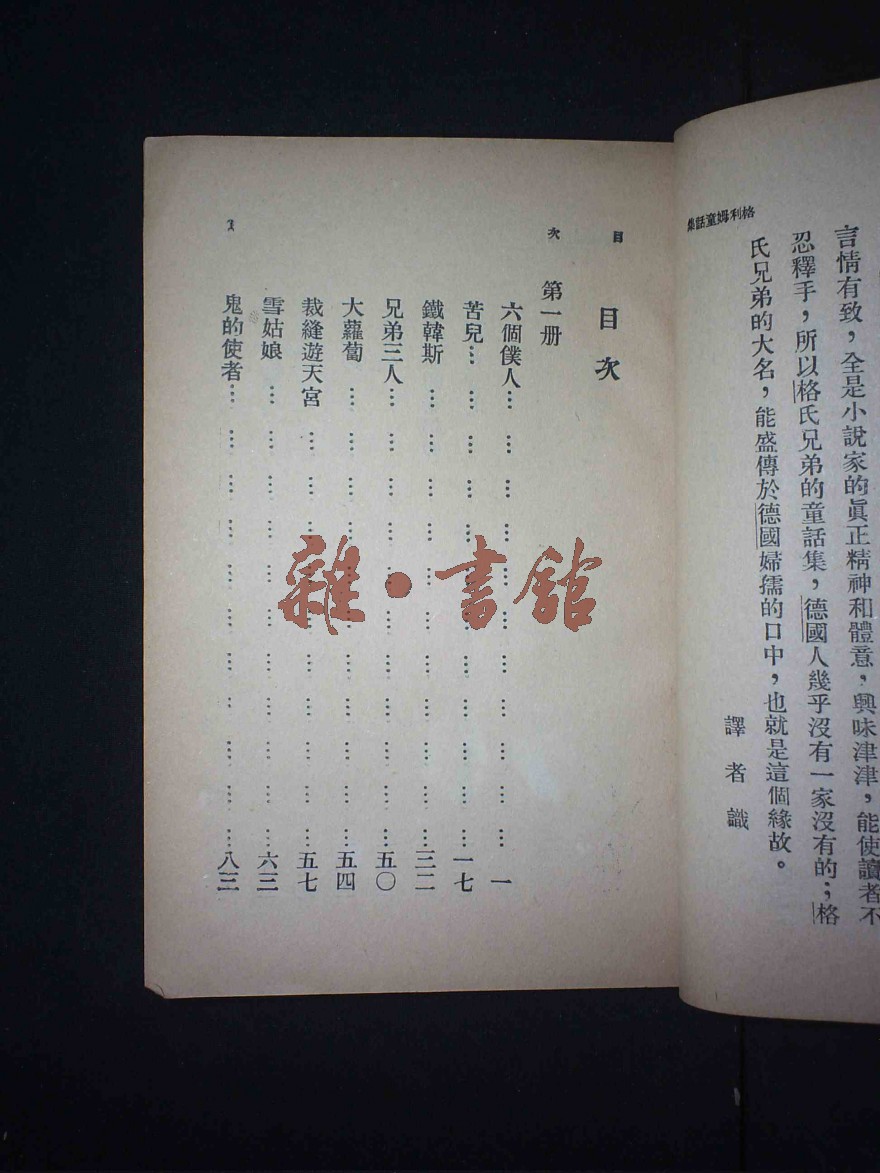 格利姆童話集
言情有致，全是小說家的眞正精神和體意，興味津津，能使讀者不
忍釋手，所以格氏兄弟的童話集，德國人幾乎沒有一家沒有的；格
氏兄弟的大名，能盛傳於德國婦孺的口中，也就是這個緣故。
譯者識
目次
目次
第一册
六個僕人… … … … … … … … … … … …一
苦兒… … … … … … … … … … … …一七
鐵韓斯 … … … … … … … … … … …三二
兄弟三人… … … … … … … … … … … …五〇
大蘿蔔 … … … … … … … … … … …五四
裁縫遊天宮 … … … … … … … … … … …五七
雪姑娘 … … … … … … … … … … …六三
鬼的使者… … … … … … … … … … … …八三
1
雜·書館